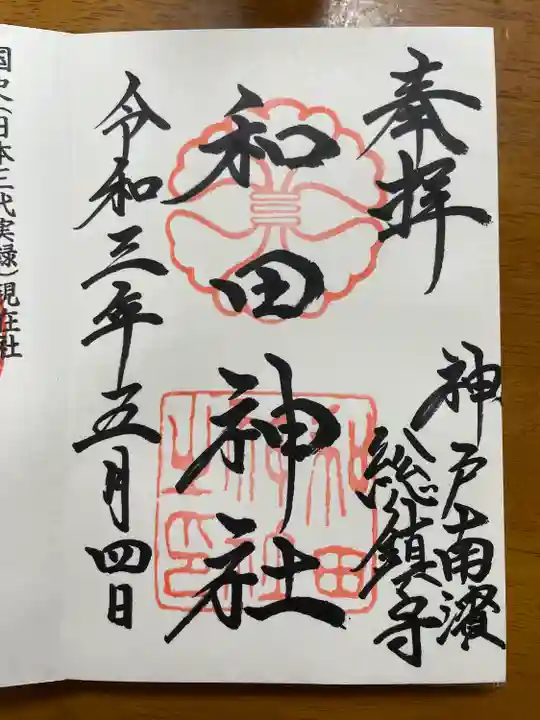 奉拝
神戸南濱
総鎮守
和田神社
和田
神社
之印
令和三年五月四日
国史(日本三代実録)現在社